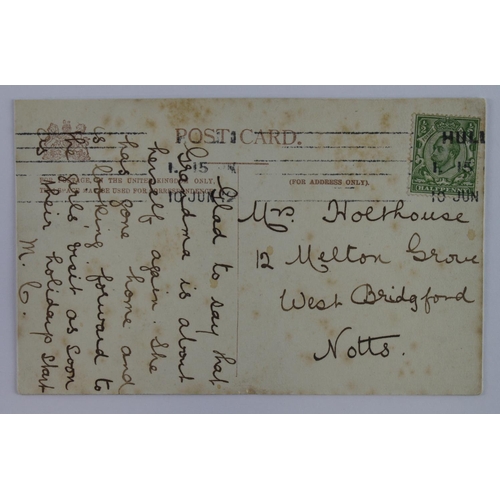 POST CARD.
FOR INLAND POSTAGE, IN THE UNITED KINGDOM ONLY,
THIS SPACE MAY BE USED FOR CORRESPONDENCE.
(FOR ADDRESS ONLY.)
HALFPENNY
HULL
1.15
10 JUN
15
10 JUN
Mrs. Holthouse
12 Melton Grove
West Bridgford
Notts.
Glad to say that
Grandma is about
herself again. She
has gone home and
is looking forward to
the girls visit as soon
as their holidays start
M. C.